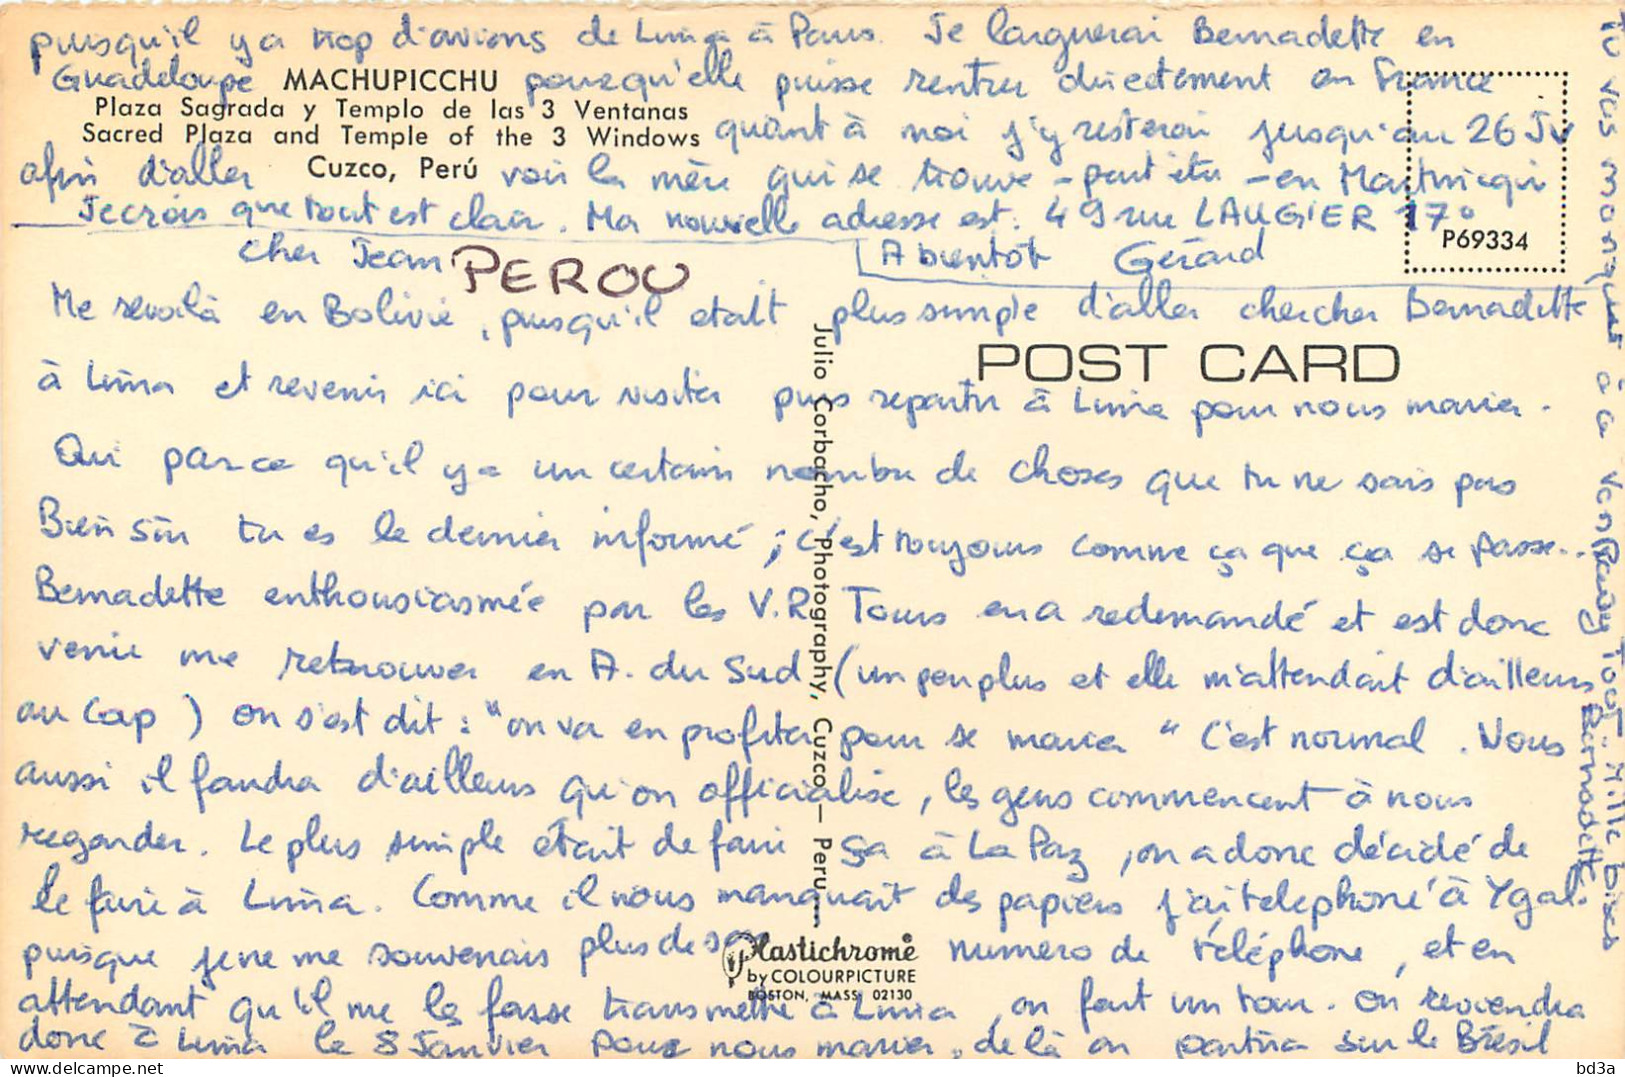 cher Jean PEROU
Me revoilà en Bolivie, puisqu'il etait plus simple d'aller chercher Bernadette
à Lima et revenir ici pour visiter puis repartir à Lima pour nous marier.
Oui parce qu'il y a un certain nombre de choses que tu ne sais pas
Bien sûr tu es le dernier informé ; c'est toujours comme ça que ça se passe..
Bernadette enthousiasmée par les V.R. Tours en a redemandé et est donc
venue me retrouver en A. du Sud (un peu plus et elle m'attendait d'ailleurs
au Cap) on s'est dit : "on va en profiter pour se marier" C'est normal. Nous
aussi il faudra d'ailleurs qu'on officialise, les gens commencent à nous
regarder. Le plus simple était de faire ça à La Paz, on a donc décidé de
le faire à Lima. Comme il nous manquait des papiers j'ai telephoné à Ygal.
puisque je ne me souvenais plus de son numero de téléphone, et en
attendant qu'il me les fasse transmettre à Lima, on fait un tour. on reviendra
donc à Lima le 8 Janvier pour nous marier, de là on partira sur le Brésil
puisqu'il y a trop d'avions de Lima à Paris. Je larguerai Bernadette en
Guadeloupe pour qu'elle puisse rentrer directement en France
quant à moi j'y resterai jusqu'au 26 Jv
afin d'aller voir la mère qui se trouve - peut etre - en Martinique
Je crois que tout est clair. Ma nouvelle adresse est : 49 rue LAUGIER 17°
A bientôt Gérard
Tu vas manquer à la
Tout. Mille bises
Bernadette
MACHUPICCHU
Plaza Sagrada y Templo de las 3 Ventanas
Sacred Plaza and Temple of the 3 Windows
Cuzco, Perú
P69334
POST CARD
Julio Corbacho, Photography, Cuzco — Peru
Plastichrome®
by COLOURPICTURE
BOSTON, MASS. 02130
bd3a